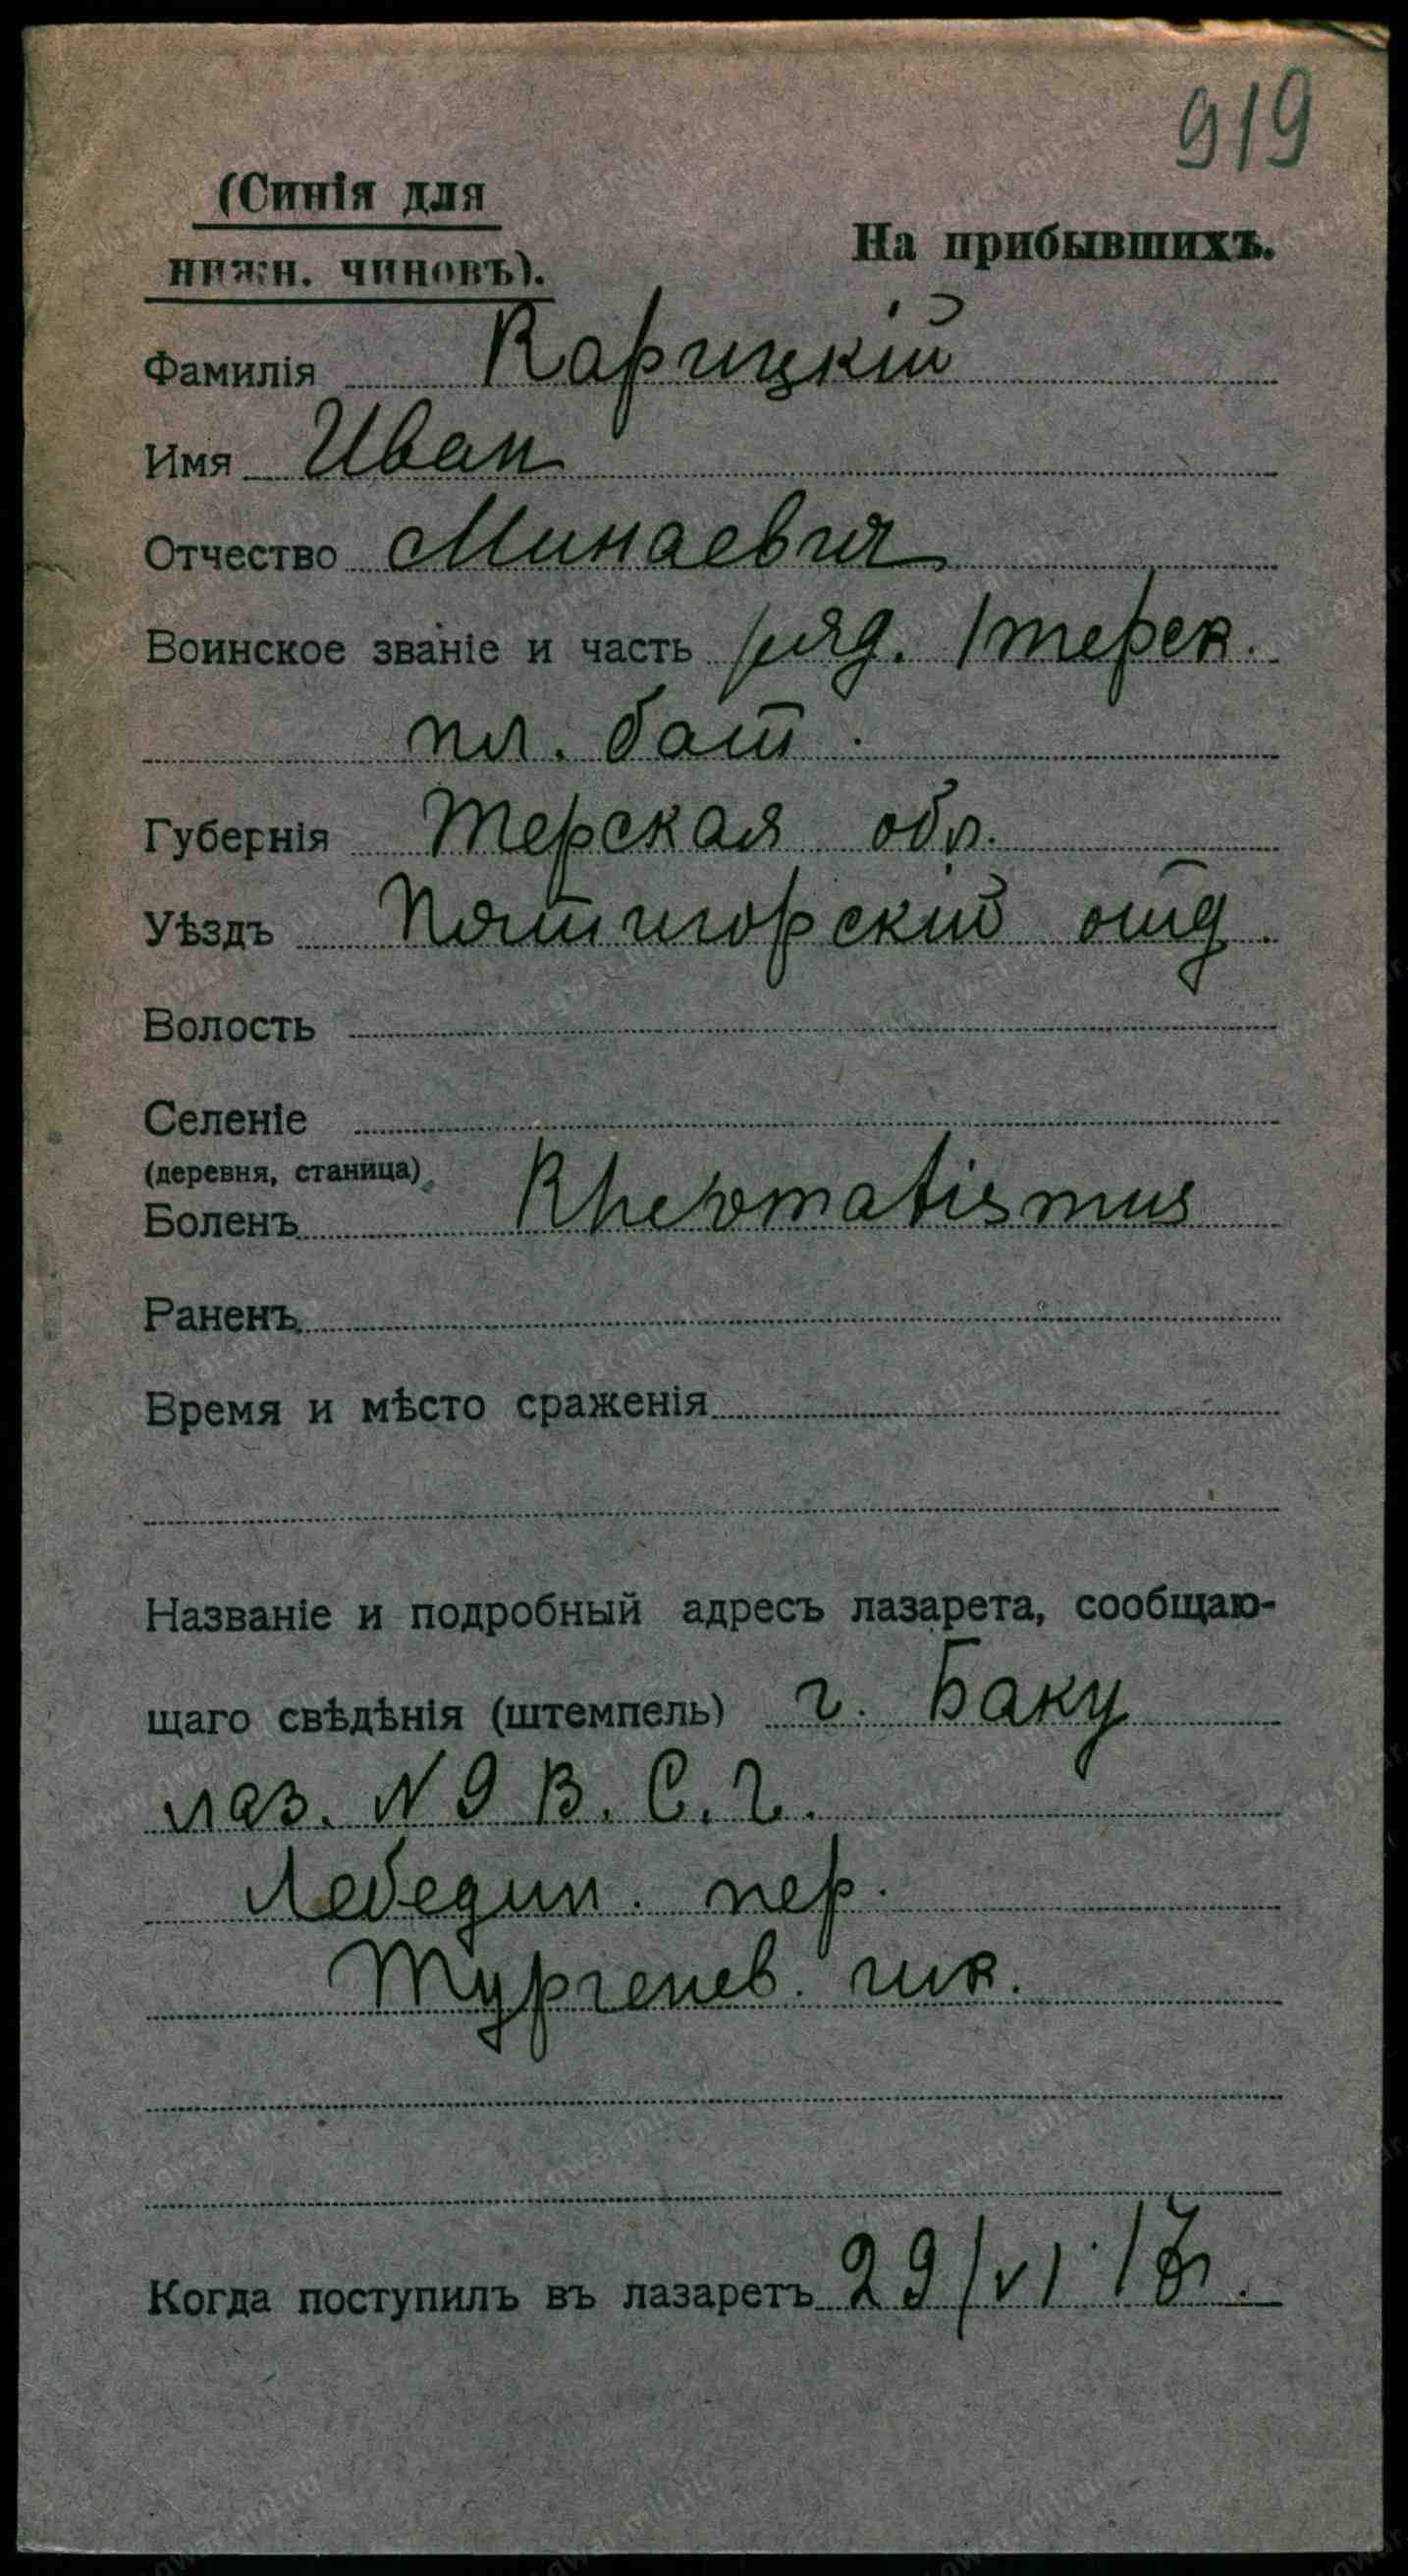 919
(Синія для
нижн. чиновъ).
На прибывшихъ.
Фамилія Карицкій
Имя Иван
Отчество Минаевич
Воинское званіе и часть ряд. 1 терск.
пл. бат.
Губернія Терская обл.
Уѣздъ Пятигорский отд.
Волость
Селеніе
(деревня, станица)
Боленъ Rheumatismus
Раненъ
Время и мѣсто сраженія
Названіе и подробный адресъ лазарета, сообщаю-
щаго свѣдѣнія (штемпель) г. Баку
лаз. N 9 В. С. Г.
Лебедин. пер.
Тургенев. шк.
Когда поступилъ въ лазаретъ 29/VI 17г.